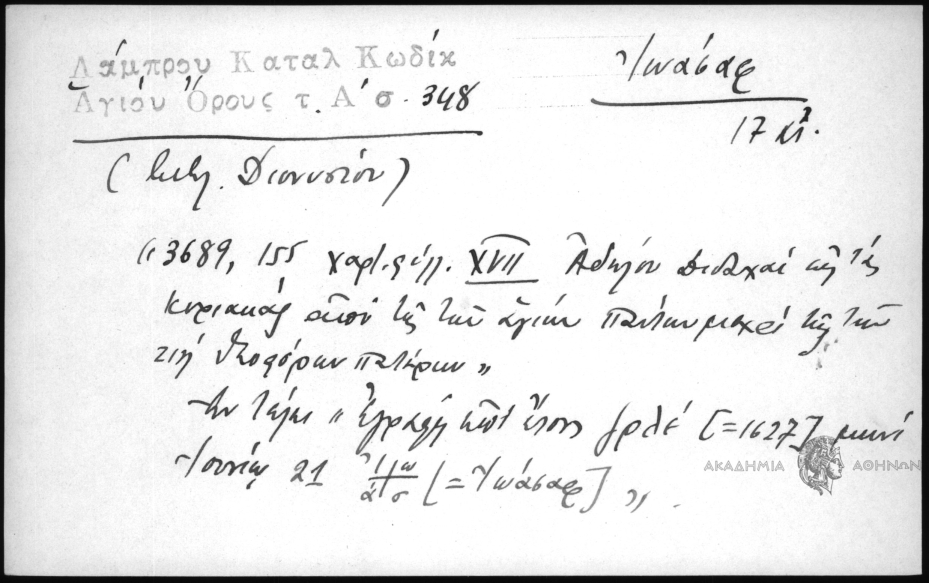 Λάμπρου Καταλ Κωδίκ
Ἁγίου Ὄρους τ. Α' σ. 348
Ἰωάσαφ
17 αἰ.
Διονυσίου)
"3689, 155 χαρτ. φύλλ. XVII Ἀδήλου Διδαχαὶ εἰς τὰς
Κυριακὰς ἀπὸ τῆς τῶν ἁγίων Πάντων μέχρι τῆς τῶν
τιή θεοφόρων πατέρων"
Ἐν τέλει "Ἐγράφη ἀπὸ ἔτους ζρλε [=1627] μηνὶ
Ἰουνίῳ 21 [=Ἰωάσαφ]".
ΑΚΑΔΗΜΙΑ ΑΘΗΝΩΝ